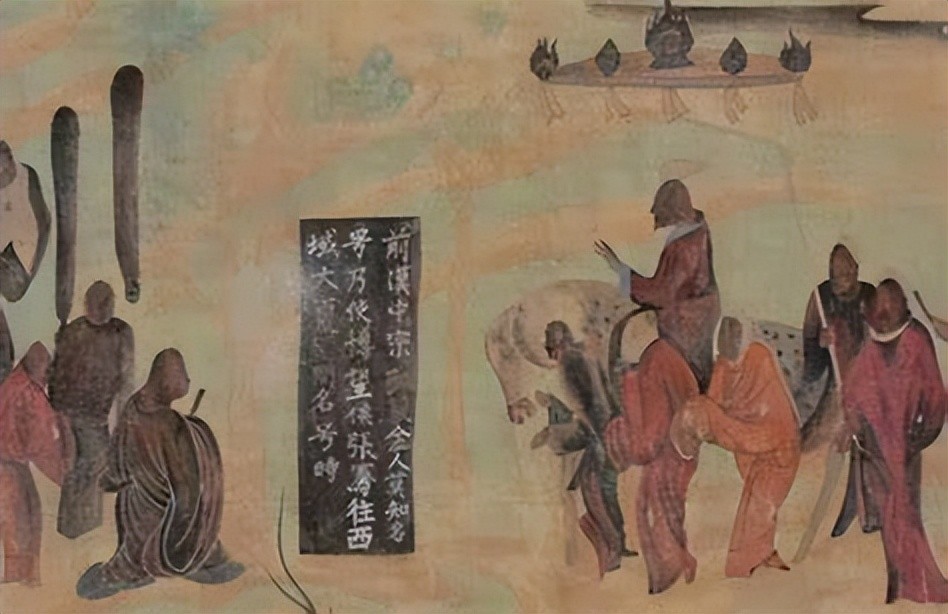 前漢中宗金人莫知名
号乃使博望侯張騫往西
域大夏名号時